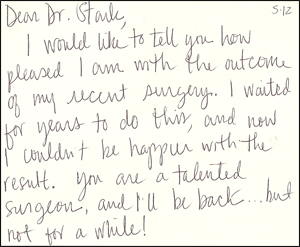 5-12
Dear Dr. Stark,
I would like to tell you how
pleased I am with the outcome
of my recent surgery. I waited
for years to do this, and now
I couldn't be happier with the
result. You are a talented
surgeon, and I'll be back...but
not for a while!